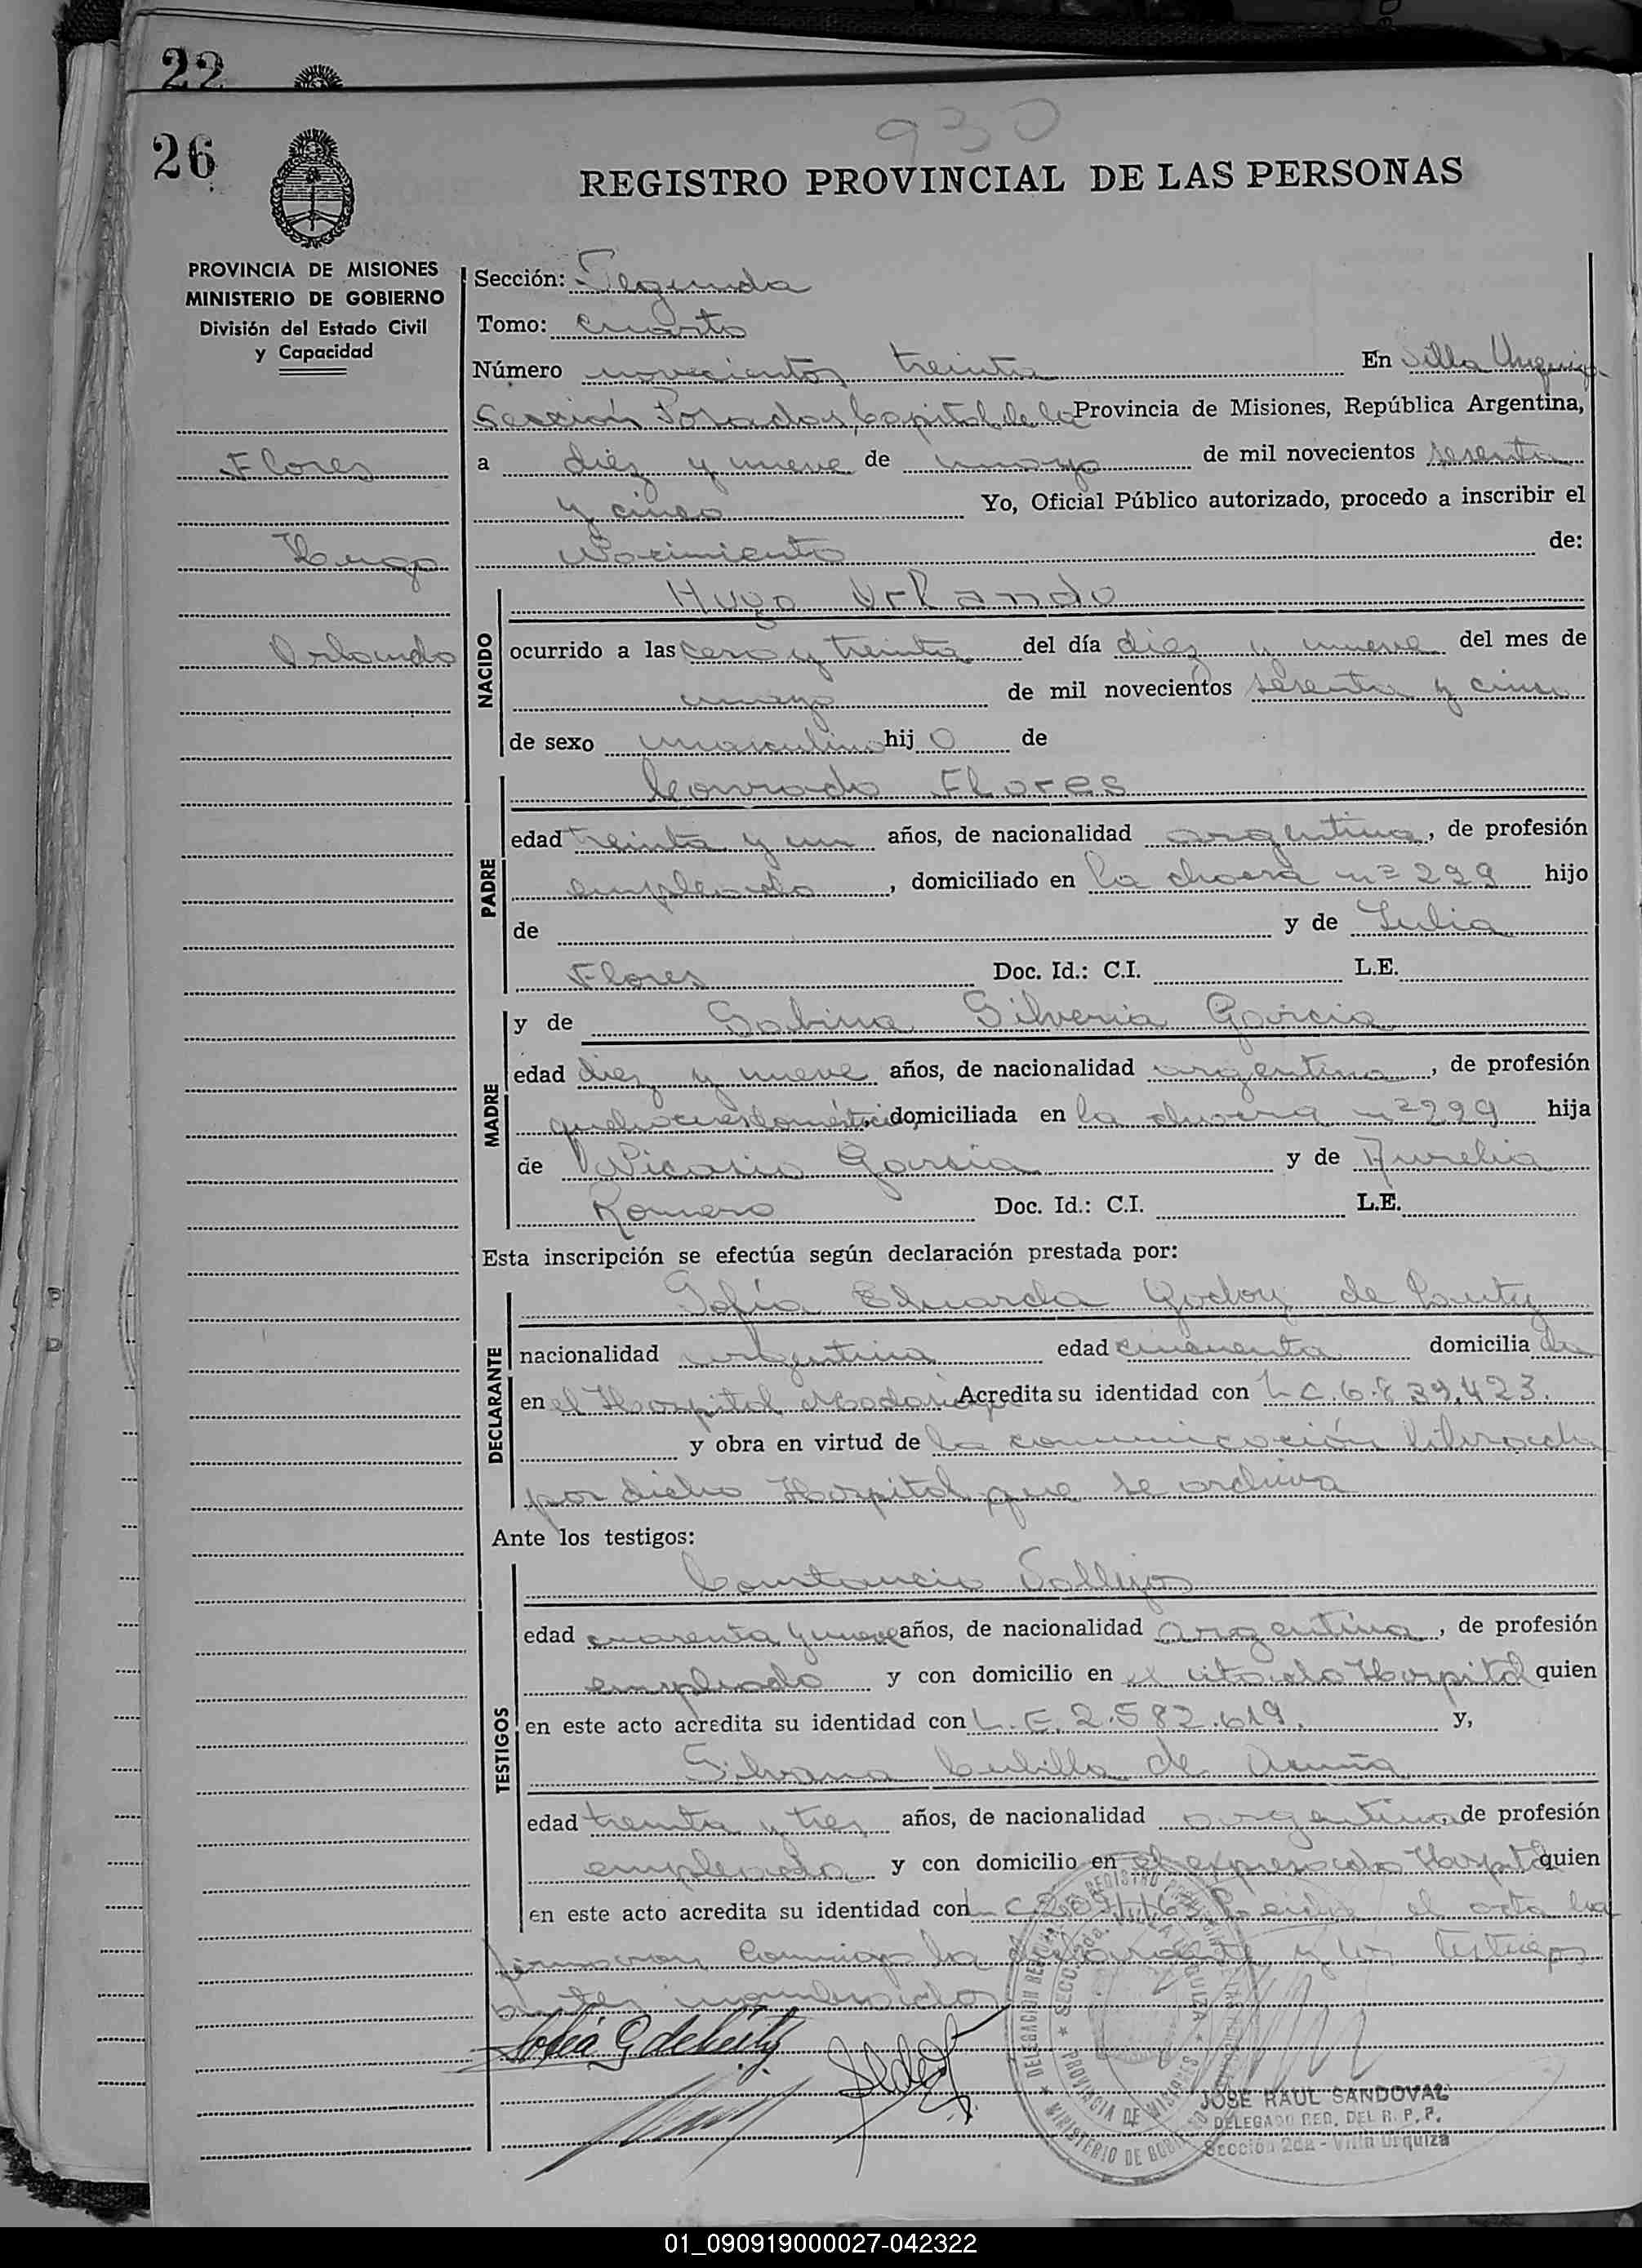 22
26
930
REGISTRO PROVINCIAL DE LAS PERSONAS
PROVINCIA DE MISIONES
MINISTERIO DE GOBIERNO
División del Estado Civil
y Capacidad
Flores
Hugo
Orlando
Sección: Segunda
Tomo: Cuarto
Número novecientos treinta En Villa Urquiza
Sección Posadas, Capital de la Provincia de Misiones, República Argentina,
a diez y nueve de mayo de mil novecientos sesenta
y cinco Yo, Oficial Público autorizado, procedo a inscribir el
Nacimiento de:
NACIDO
Hugo Orlando
ocurrido a las cero y treinta del día diez y nueve del mes de
mayo de mil novecientos sesenta y cinco
de sexo masculino hijo de
PADRE
Conrado Flores
edad treinta y un años, de nacionalidad argentina, de profesión
empleado, domiciliado en la chacra nº 229 hijo
de y de Julia
Flores Doc. Id.: C.I. L.E.
MADRE
y de Sabina Silveria Garcia
edad diez y nueve años, de nacionalidad argentina, de profesión
quehaceres domésticos, domiciliada en la chacra nº 229 hija
de Nicasio Garcia y de Aurelia
Romero Doc. Id.: C.I. L.E.
Esta inscripción se efectúa según declaración prestada por:
DECLARANTE
Sofía Eduarda Godoy de
nacionalidad argentina edad cincuenta domiciliada
en el Hospital Madariaga Acredita su identidad con L.C. 6.839.423.
y obra en virtud de la comunicación librada
por dicho Hospital que se archiva
Ante los testigos:
TESTIGOS
Constancio Vallejos
edad cuarenta y nueve años, de nacionalidad argentina, de profesión
empleado y con domicilio en el citado Hospital quien
en este acto acredita su identidad con L.E. 2.582.619. y,
Silvana Cubilla de Acuña
edad treinta y tres años, de nacionalidad argentina de profesión
empleada y con domicilio en el expresado Hospital quien
en este acto acredita su identidad con L.C. el acta la
firmaron conmigo la declarante y los testigos
antes nombrados
JOSE RAUL SANDOVAL
DELEGADO REG. DEL R. P. P.
Sección 2da - Villa Urquiza
PROVINCIA DE MISIONES
01_090919000027-042322